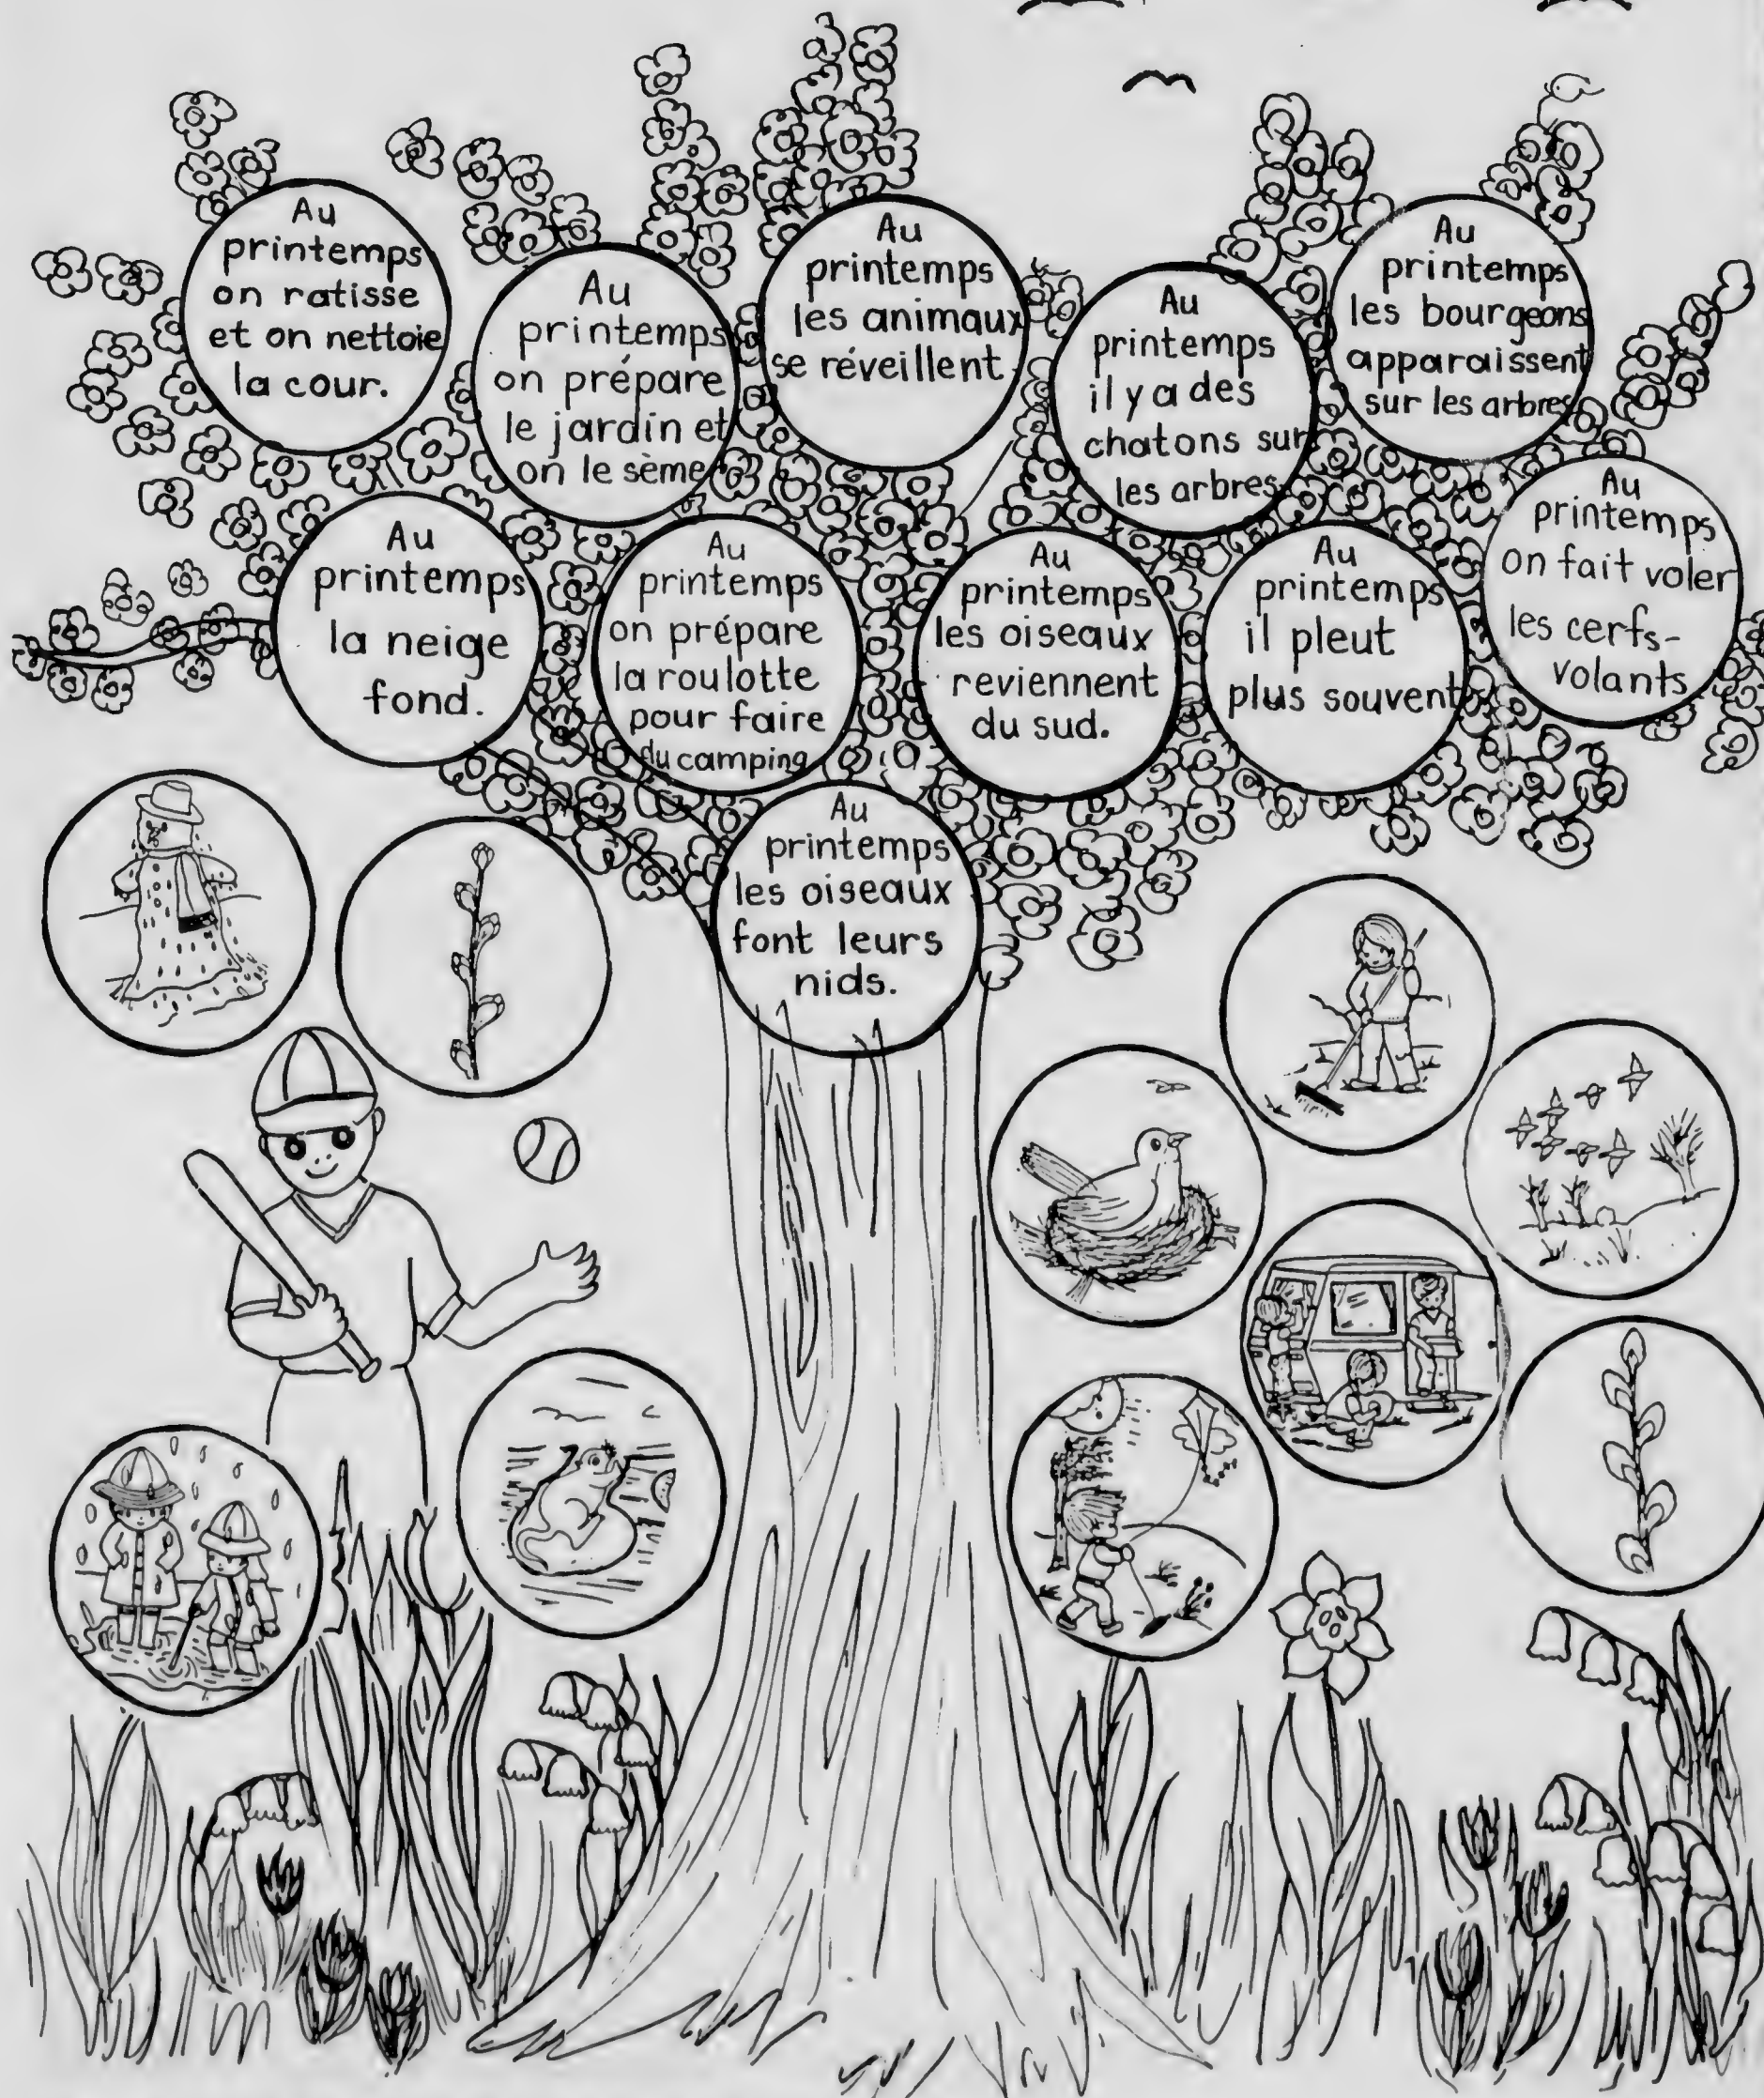 Au
printemps
on ratisse
et on nettoie
la cour.
Au
printemps
on prépare
le jardin et
on le sème
Au
printemps
les animaux
se réveillent.
Au
printemps
il y a des
chatons sur
les arbres.
Au
printemps
les bourgeons
apparaissent
sur les arbres
Au
printemps
la neige
fond.
Au
printemps
on prépare
la roulotte
pour faire
du camping
Au
printemps
les oiseaux
reviennent
du sud.
Au
printemps
il pleut
plus souvent
Au
printemps
on fait voler
les cerfs-
volants
Au
printemps
les oiseaux
font leurs
nids.